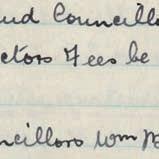 and Councillo
ctors Fees be
ncillors Wm